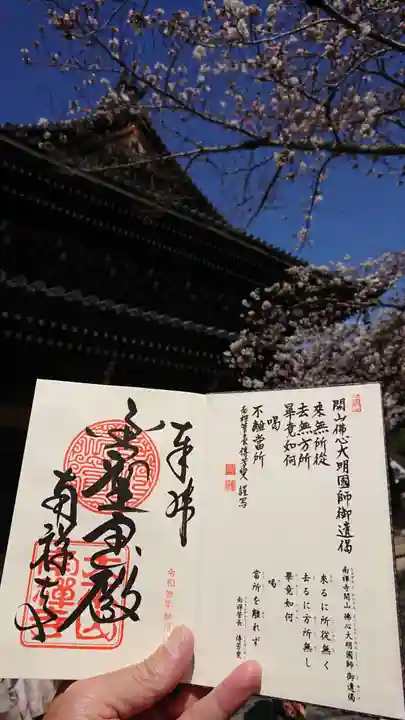 開山佛心大明國師御遺偈
來無所從
去無方所
畢竟如何
喝
不離當所
南禅管長傳芳叟 謹写
南禅寺開山 佛心大明國師 御遺偈
來るに所從無く
去るに方所無し
畢竟如何
喝
當所を離れず
南禅管長 傳芳叟
奉拝
金剛王宝殿
南禅寺